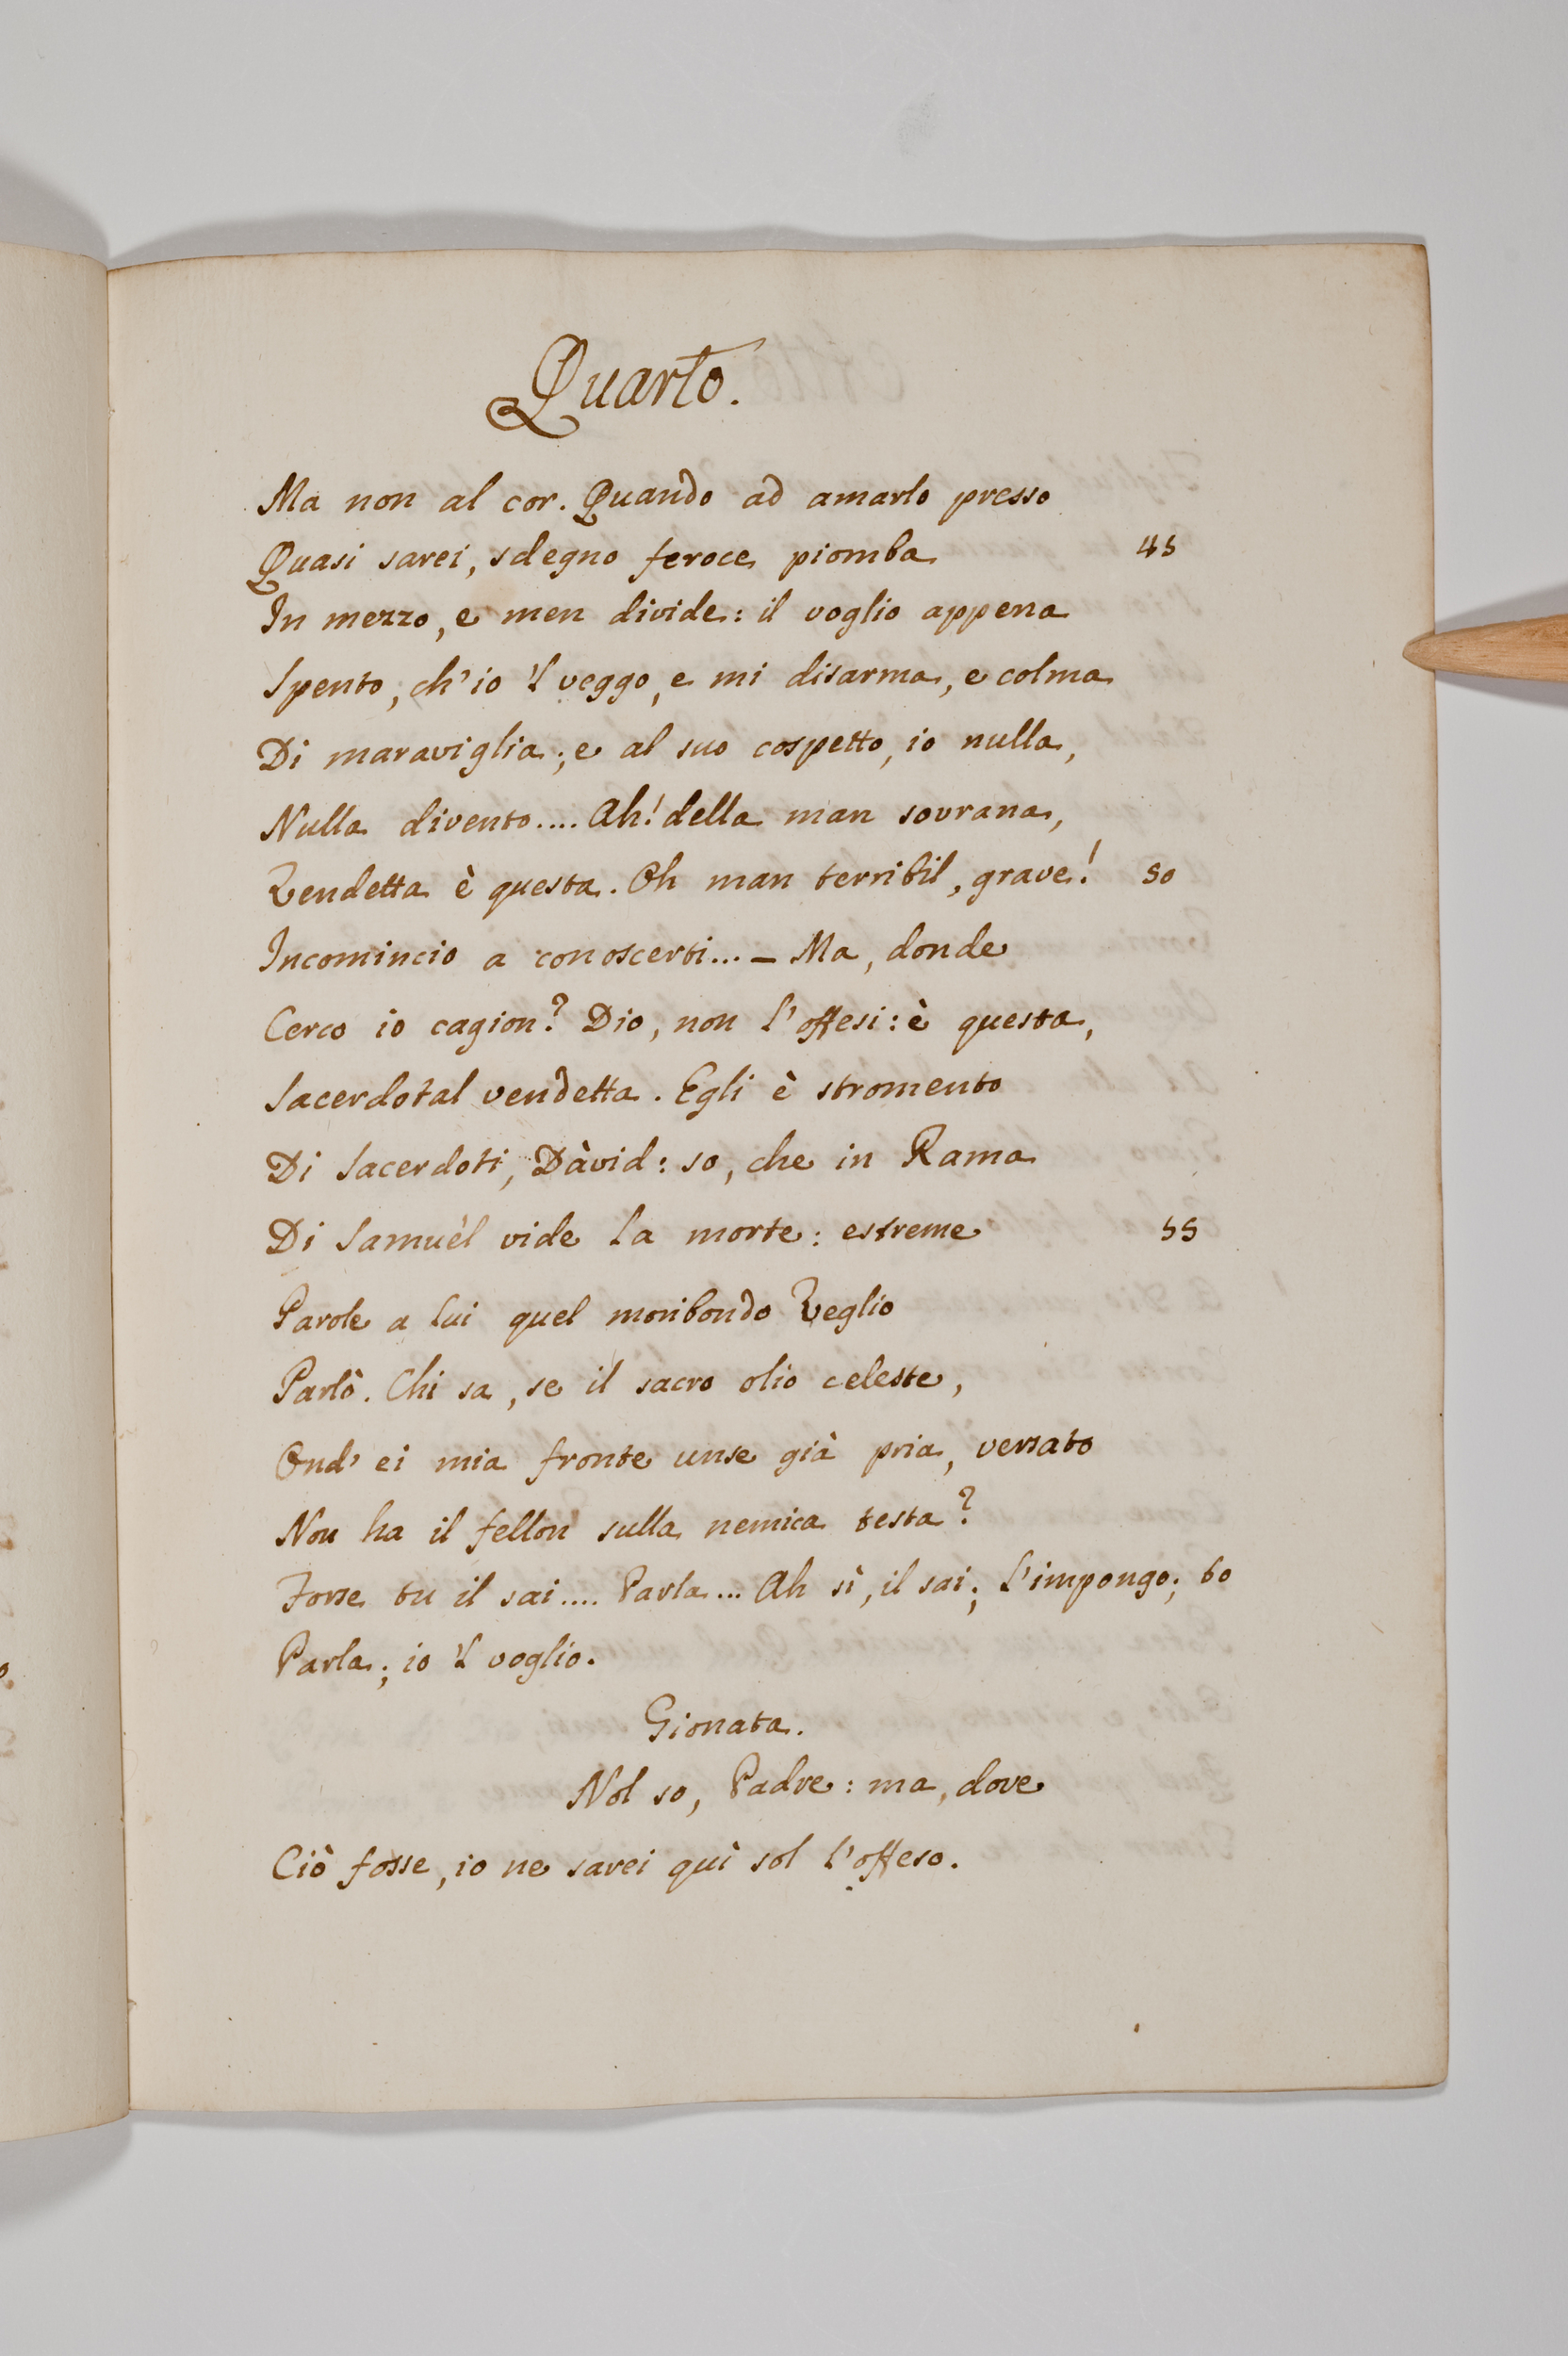 Quarto.
Ma non al cor. Quando ad amarlo presso
Quasi sarei, sdegno feroce piomba 45
In mezzo, e men divide: il voglio appena
Spento, ch'io 'l veggo, e mi disarma, e colma
Di maraviglia; e al suo cospetto, io nulla,
Nulla divento.... Ah! della man sovrana,
Vendetta è questa. Oh man terribil, grave! 50
Incomincio a conoscerti... – Ma, donde
Cerco io cagion? Dio, non l'offesi: è questa,
Sacerdotal vendetta. Egli è stromento
Di Sacerdoti, Dàvid: so, che in Rama
Di Samuèl vide la morte: estreme 55
Parole a lui quel moribondo Veglio
Parlò. Chi sa, se il sacro olio celeste,
Ond' ei mia fronte unse già pria, versato
Non ha il fellon sulla nemica testa?
Forse tu il sai.... Parla... Ah sì, il sai; l'impongo; 60
Parla; io 'l voglio.
Gionata.
Nol so, Padre: ma, dove
Ciò fosse, io ne sarei quì sol l'offeso.